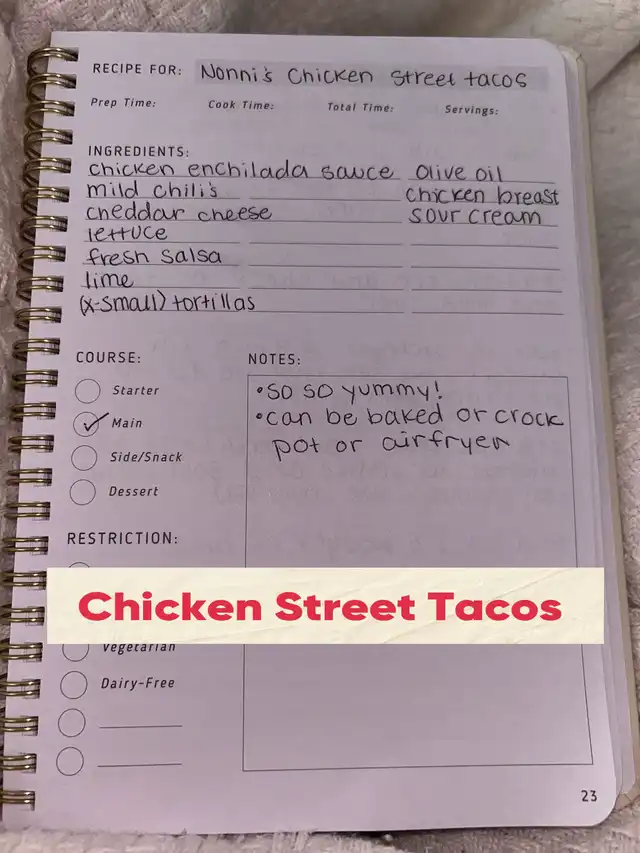 RECIPE FOR: Nonni's Chicken Street tacos
Prep Time: Cook Time: Total Time: Servings:
INGREDIENTS:
chicken enchilada sauce olive oil
mild chili's chicken breast
cheddar cheese sour cream
lettuce
fresh salsa
lime
(x-small) tortillas
COURSE:
Starter
Main
Side/Snack
Dessert
NOTES:
•so so yummy!
•can be baked or crock
pot or airfryer
RESTRICTION:
Chicken Street Tacos
Vegetarian
Dairy-Free
23